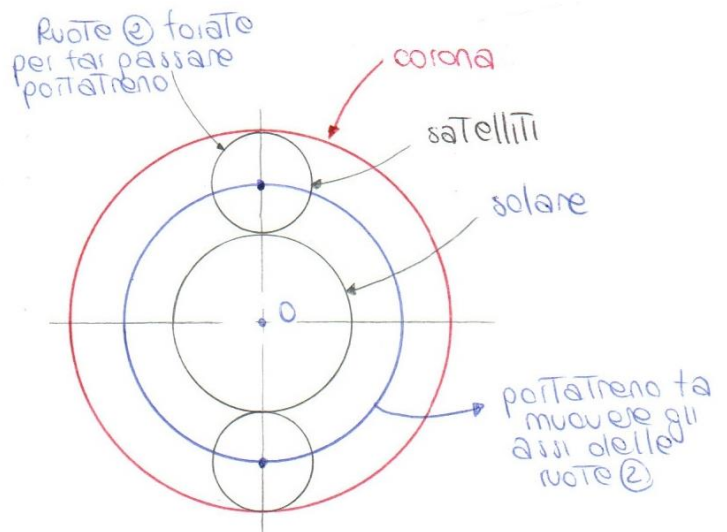 Ruote ② forate
per far passare
portatreno
corona
satelliti
solare
O
portatreno fa
muovere gli
assi delle
ruote ②